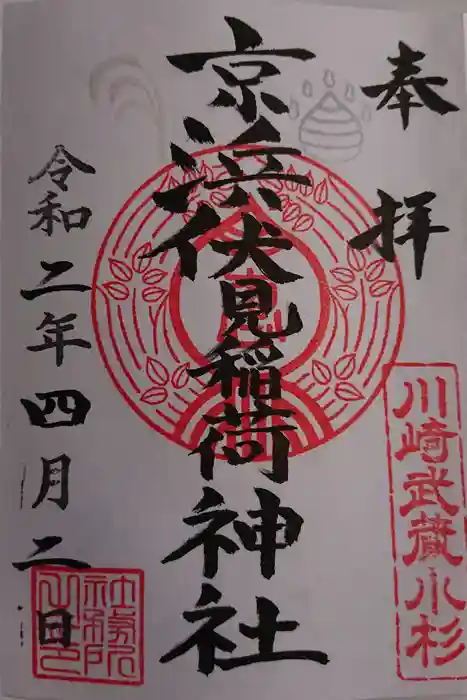 奉拝
川崎武蔵小杉
京浜伏見稲荷神社
令和二年四月二日
社務所